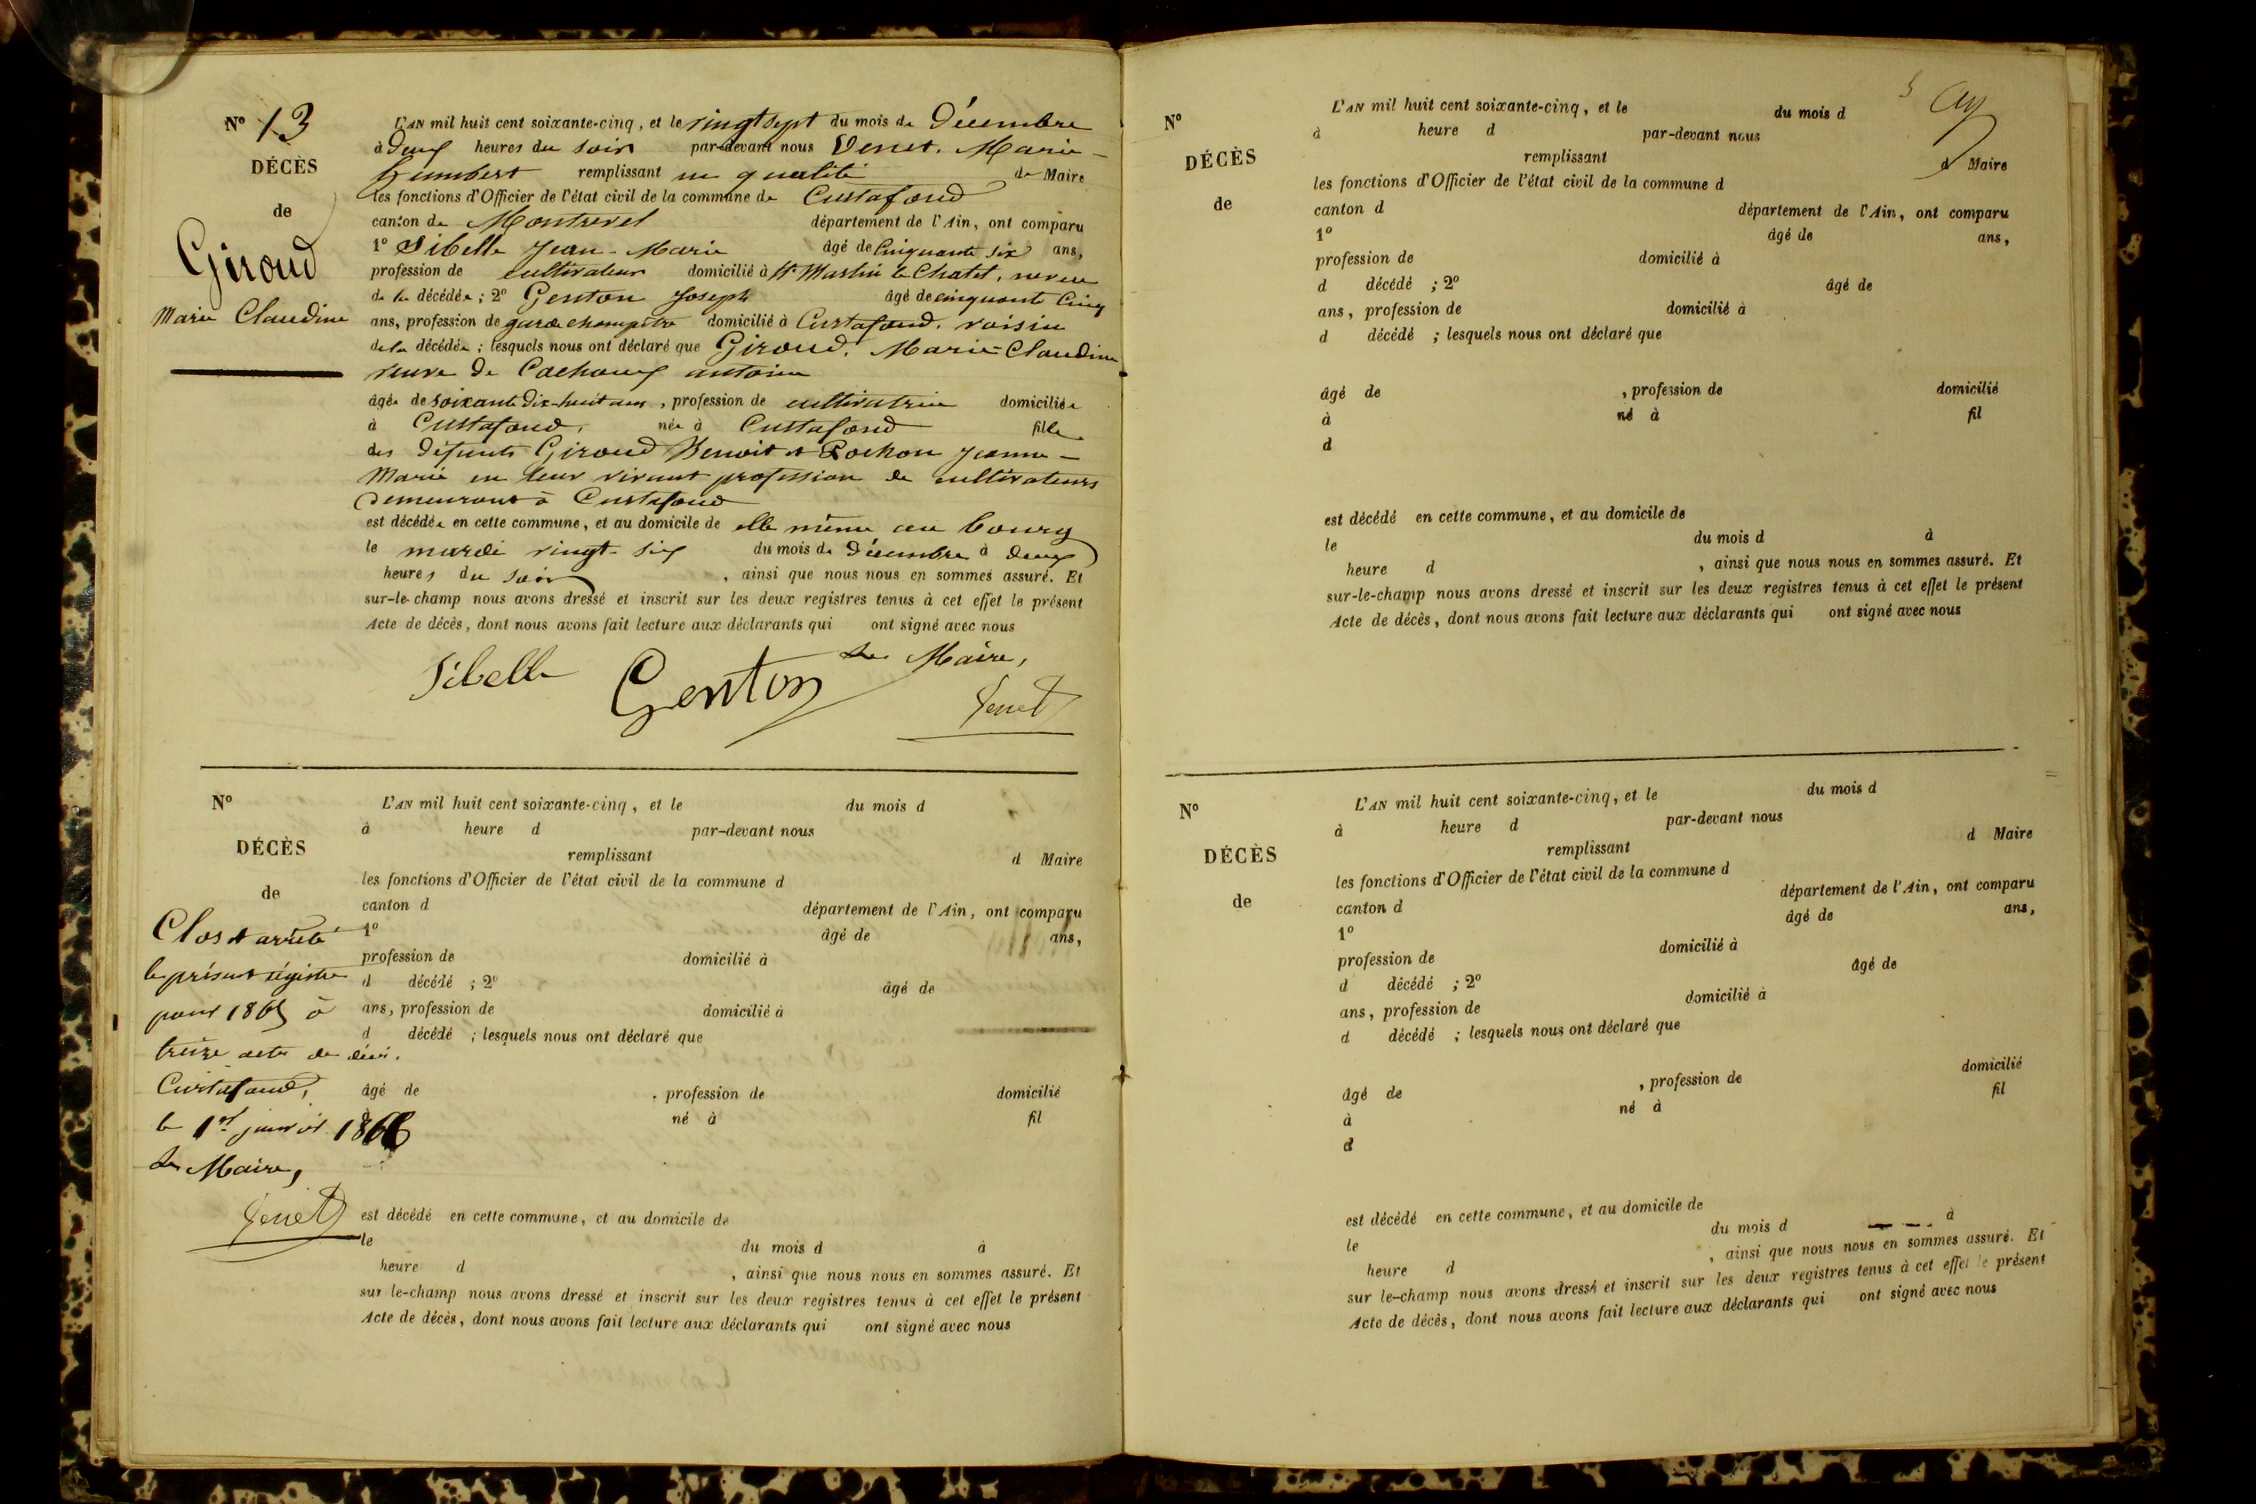 N° 13
DÉCÈS
de
Giroud
Marie Claudine
L'AN mil huit cent soixante-cinq, et le vingt sept du mois de Décembre
à deux heures du soir par-devant nous Venet, Marie-
humbert remplissant en qualité de Maire
les fonctions d'Officier de l'état civil de la commune de Curtafond
canton de Montrevel département de l'Ain, ont comparu
1° Sibelle Jean-Marie âgé de Cinquante six ans,
profession de cultivateur domicilié à St Martin le Chatel, neveu
de la décédée; 2° Genton Joseph âgé de cinquante cinq
ans, profession de garde champêtre domicilié à Curtafond, voisin
de la décédée; lesquels nous ont déclaré que Giroud, Marie-Claudine
veuve de Cochoux antoine
âgée de soixante dix-huit ans, profession de cultivatrice domiciliée
à Curtafond, née à Curtafond fille
des défunts Giroud Benoit et Rochon Jeanne-
Marie en leur vivant profession de cultivateurs
demeurant à Curtafond
est décédée en cette commune, et au domicile de elle même au bourg
le mardi vingt-six du mois de Décembre à deux
heures du soir, ainsi que nous nous en sommes assuré. Et
sur-le-champ nous avons dressé et inscrit sur les deux registres tenus à cet effet le présent
Acte de décès, dont nous avons fait lecture aux déclarants qui ont signé avec nous
Le Maire,
Sibelle Genton Venet
N°
DÉCÈS
de
Clos et arrêté
le présent régistre
pour 1865 à
treize actes de décès.
Curtafond,
le 1er janvier 1866
Le Maire,
Venet
L'AN mil huit cent soixante-cinq, et le du mois d
à heure d par-devant nous
remplissant d Maire
les fonctions d'Officier de l'état civil de la commune d
canton d département de l'Ain, ont comparu
1° âgé de ans,
profession de domicilié à
d décédé ; 2° âgé de
ans, profession de domicilié à
d décédé ; lesquels nous ont déclaré que
âgé de , profession de domicilié
né à fil
est décédé en cette commune, et au domicile de
le du mois d à
heure d , ainsi que nous nous en sommes assuré. Et
sur le-champ nous avons dressé et inscrit sur les deux registres tenus à cet effet le présent
Acte de décès, dont nous avons fait lecture aux déclarants qui ont signé avec nous
N°
DÉCÈS
de
L'AN mil huit cent soixante-cinq, et le du mois d
à heure d par-devant nous
remplissant d Maire
les fonctions d'Officier de l'état civil de la commune d
canton d département de l'Ain, ont comparu
1° âgé de ans,
profession de domicilié à
d décédé ; 2° âgé de
ans, profession de domicilié à
d décédé ; lesquels nous ont déclaré que
âgé de , profession de domicilié
à né à fil
d
est décédé en cette commune, et au domicile de
le du mois d à
heure d , ainsi que nous nous en sommes assuré. Et
sur-le-champ nous avons dressé et inscrit sur les deux registres tenus à cet effet le présent
Acte de décès, dont nous avons fait lecture aux déclarants qui ont signé avec nous
N°
DÉCÈS
de
L'AN mil huit cent soixante-cinq, et le du mois d
à heure d par-devant nous
remplissant d Maire
les fonctions d'Officier de l'état civil de la commune d
canton d département de l'Ain, ont comparu
1° âgé de ans,
profession de domicilié à
d décédé ; 2° âgé de
ans, profession de domicilié à
d décédé ; lesquels nous ont déclaré que
âgé de , profession de domicilié
à né à fil
d
est décédé en cette commune, et au domicile de
le du mois d à
heure d , ainsi que nous nous en sommes assuré. Et
sur le-champ nous avons dressé et inscrit sur les deux registres tenus à cet effet le présent
Acte de décès, dont nous avons fait lecture aux déclarants qui ont signé avec nous